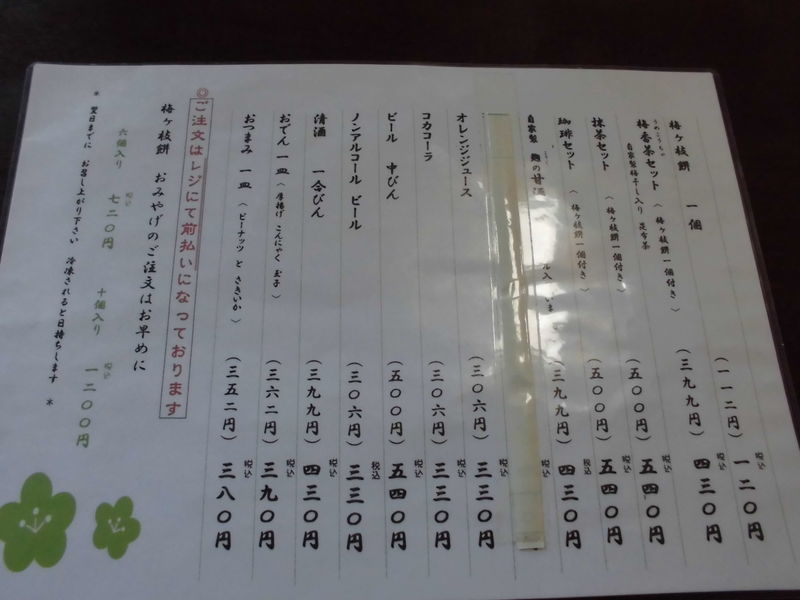 梅ヶ枝餅 一個 (一一二円) 税込 一二〇円
うめこうちゃ
梅香茶セット (梅ヶ枝餅一個付き) (三九九円) 税込 四三〇円
自家製梅干し入り 昆布茶
抹茶セット (梅ヶ枝餅一個付き) (五〇〇円) 税込 五四〇円
珈琲セット (梅ヶ枝餅一個付き) (五〇〇円) 税込 五四〇円
自家製 麹の甘酒 (三九九円) 税込 四三〇円
オレンジジュース (三〇六円) 税込 三三〇円
コカコーラ (三〇六円) 税込 三三〇円
ビール 中びん (五〇〇円) 税込 五四〇円
ノンアルコール ビール (三〇六円) 税込 三三〇円
清酒 一合びん (三九九円) 税込 四三〇円
おでん 一皿 (厚揚げ こんにゃく 玉子) (三六二円) 税込 三九〇円
おつまみ 一皿 (ピーナッツ と さきいか) (三五二円) 税込 三八〇円
◎ご注文はレジにて前払いになっております
梅ヶ枝餅 おみやげのご注文はお早めに
六個入り 税込 七二〇円 十個入り 税込 一二〇〇円
* 翌日までに お召し上がり下さい 冷凍されると日持ちします *